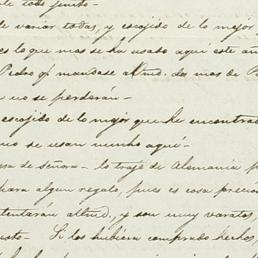 te todo junto-
de variar todas, y escojido de lo mejor
es lo que mas se ha usado aqui este añ
Pedro qe mandase a Vmd. dos mas de P
n no se perderán-
escojido de lo mejor que he encontrad
no se usan mucho aqui-
sa de señora- lo traje de Alemania p
para algun regalo, pues es cosa precio
tentarán a Vmd., y son muy varatos,
usto- Si los hubiera comprado hechos,